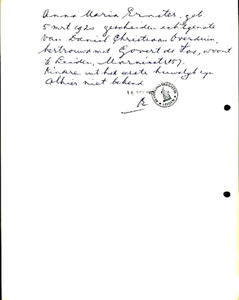 Anna Maria Ernster, geb.
5 mrt 1920 gescheiden echtgenote
van Daniel Christiaan Overduin,
hertrouwd met Govert de Vos, woont
te Leiden, Marnixstr 157.
Kindere uit het eerste huwelijk zijn
Alhier niet bekend